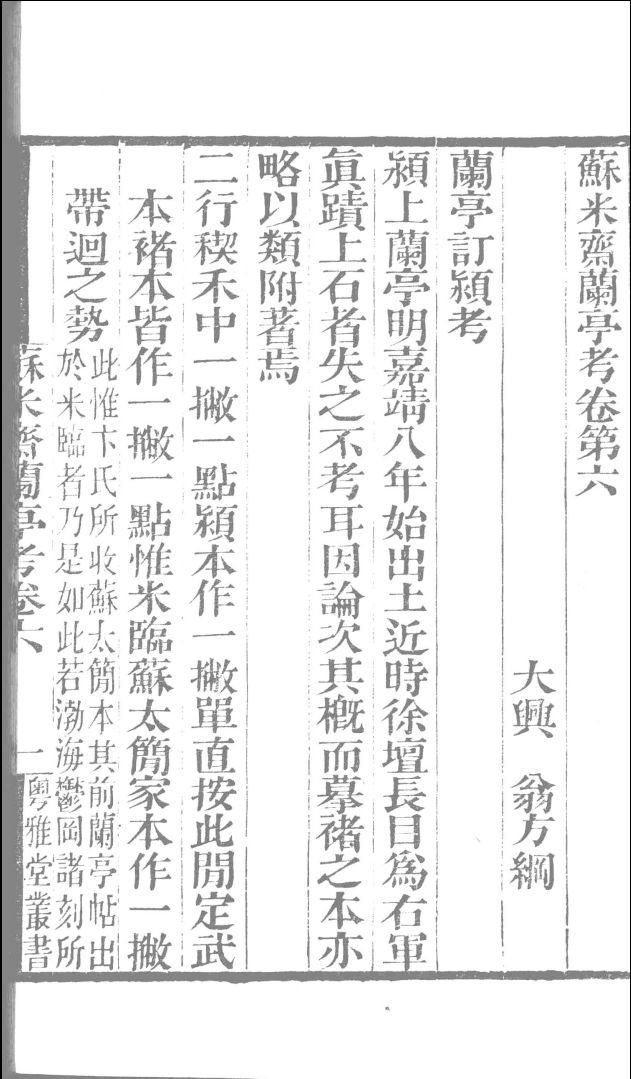 蘇米齋蘭亭考卷第六
大興 翁方綱
蘭亭訂潁考
潁上蘭亭明嘉靖八年始出土近時徐壇長目為右軍
眞蹟上石者失之不考耳因論次其槪而摹褚之本亦
略以類附著焉
二行稧禾中一撇一點潁本作一撇單直按此閒定武
本褚本皆作一撇一點惟米臨蘇太簡家本作一撇
帶迴之勢
此惟卞氏所收蘇太簡本其前蘭亭帖出
於米臨者乃是如此若渤海鬱岡諸刻所
蘇米齋蘭亭考卷六 一 粵雅堂叢書